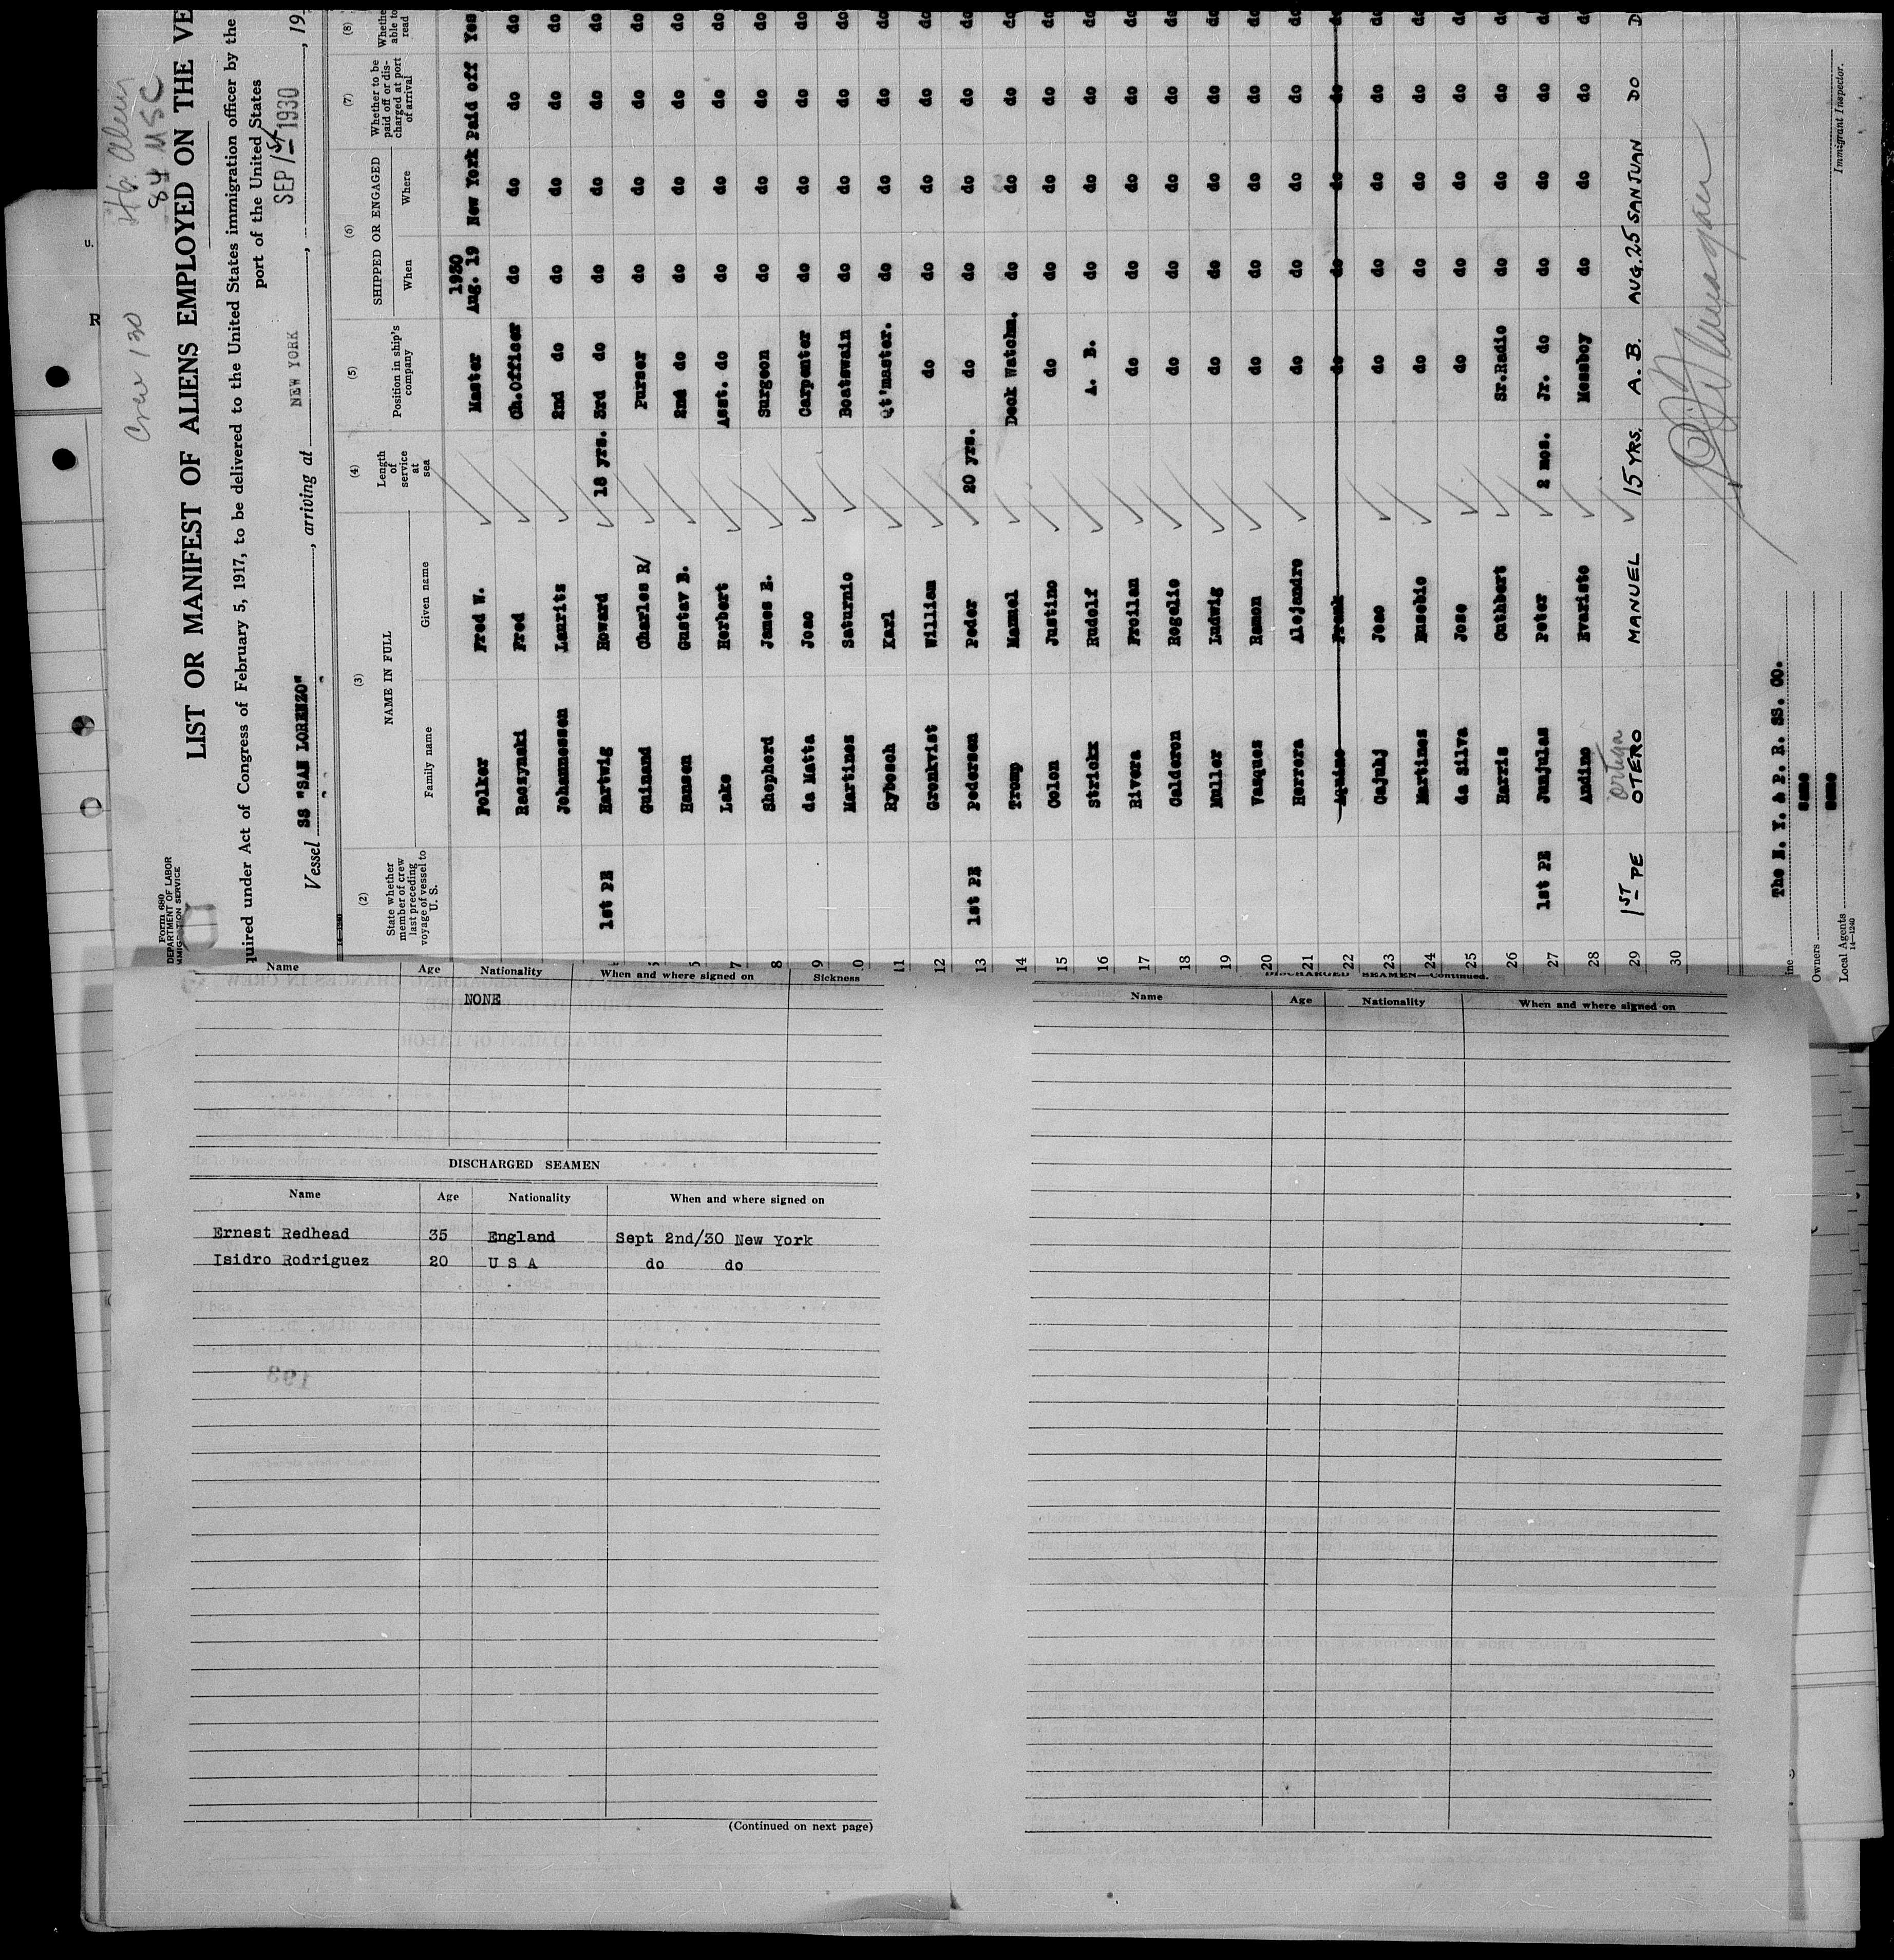 Form 680
DEPARTMENT OF LABOR
IMMIGRATION SERVICE
Crew 130
84 USC
LIST OR MANIFEST OF ALIENS EMPLOYED ON THE VE
quired under Act of Congress of February 5, 1917, to be delivered to the United States immigration officer by the
port of the United States
Vessel SS "SAN LORENZO", arriving at NEW YORK, SEP 1st 1930, 19
(2) (3) (4) (5) (6) (7) (8)
State whether member of crew last preceding voyage of vessel to U. S.
NAME IN FULL
Family name Given name
Length of service at sea
Position in ship's company
SHIPPED OR ENGAGED
When Where
Whether to be paid off or discharged at port of arrival
Whether able to read
Folker Fred W. Master 1930 Aug. 19 New York Paid off Yes
Raczynski Fred Ch.Officer do do do do
Johannessen Lauritz 2nd do do do do do
1st PE Hartwig Howard 18 yrs. 3rd do do do do do
Guinand Charles R/ Purser do do do do
Hansen Gustav B. 2nd do do do do do
7 Lake Herbert Asst. do do do do do
8 Shepherd James E. Surgeon do do do do
9 da Matta Joao Carpenter do do do do
0 Martinez Saturnio Boatswain do do do do
11 Rybesch Karl Qt'master. do do do do
12 Gronkvist William do do do do do
13 1st PE Pedersen Peder 20 yrs. do do do do do
14 Tromp Manuel Deck Watchm. do do do do
15 Colon Justino do do do do do
16 Strickx Rudolf A. B. do do do do
17 Rivera Froilan do do do do do
18 Calderon Rogelio do do do do do
19 Muller Ludwig do do do do do
20 Vasques Ramon do do do do do
21 Herrera Alejandro do do do do do
22 Aquino Frank do do do do do
23 Cajuhj Joao do do do do do
24 Martines Eusebio do do do do do
25 da Silva Jose do do do do do
26 Harris Cuthbert Sr.Radio do do do do
27 1st PE Junjulas Peter 2 mos. Jr. do do do do do
28 Andino Evaristo Messboy do do do do
Ortega
29 1ST PE OTERO MANUEL 15 YRS. A. B. AUG. 25 SAN JUAN DO D
30
ine The N. Y. & P. R. SS. CO.
Owners Same
Local Agents Same
14—1240
Immigrant Inspector.
Name Age Nationality When and where signed on Sickness
NONE
DISCHARGED SEAMEN
Name Age Nationality When and where signed on
Ernest Redhead 35 England Sept 2nd/30 New York
Isidro Rodriguez 20 U S A do do
(Continued on next page)
DISCHARGED SEAMEN—Continued.
Name Age Nationality When and where signed on